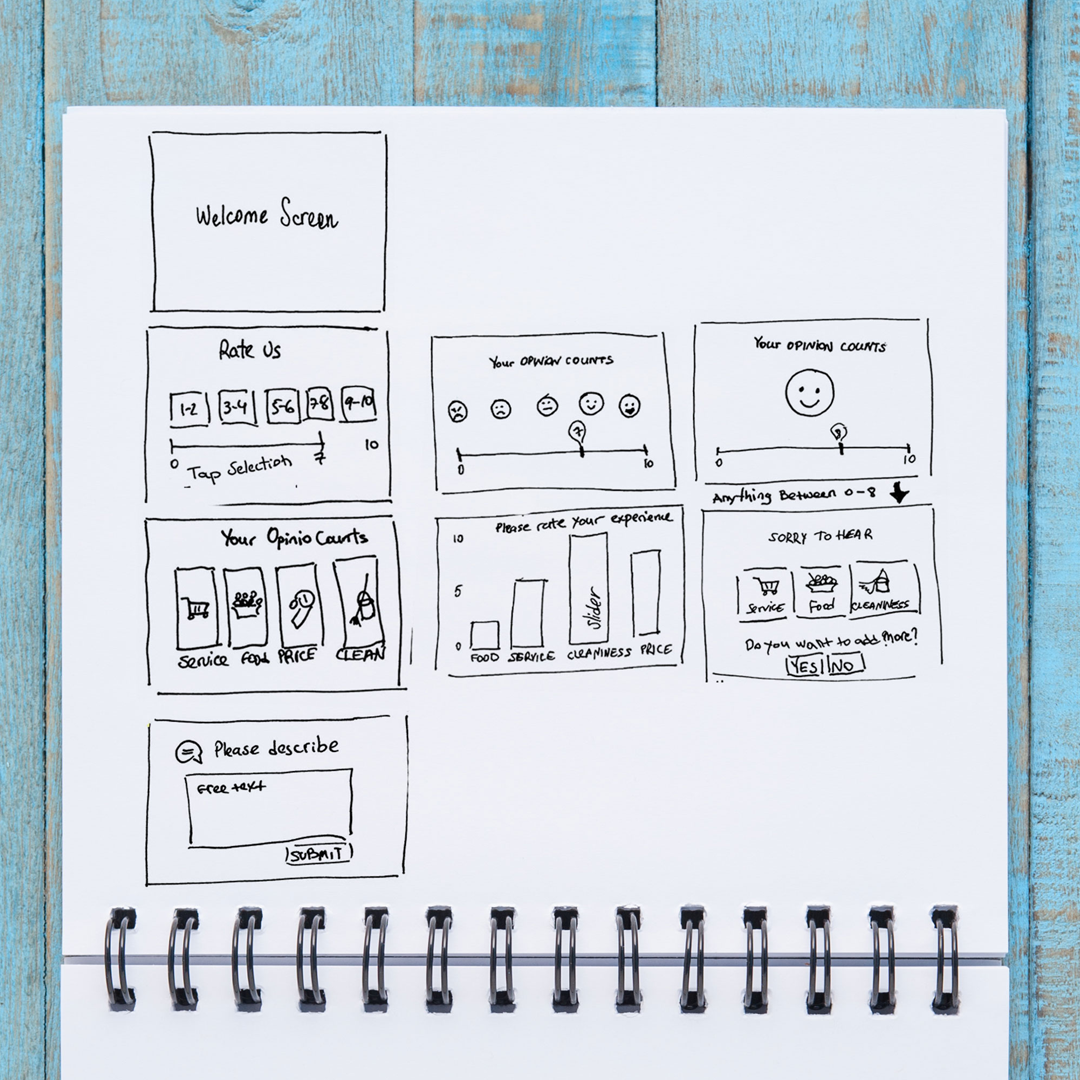 Welcome Screen
Rate Us
1-2 3-4 5-6 7-8 9-10
0 7 10
Tap Selection
Your OPINION COUNTS
7
0 10
Your OPINION COUNTS
8
0 10
Anything Between 0-8
Your Opinio Counts
Service Food PRICE CLEAN
Please rate your experience
10
5
0
slider
FOOD SERVICE CLEANINESS PRICE
SORRY TO HEAR
Service Food CLEANINESS
Do you want to add more?
YES NO
Please describe
Free text
SUBMIT